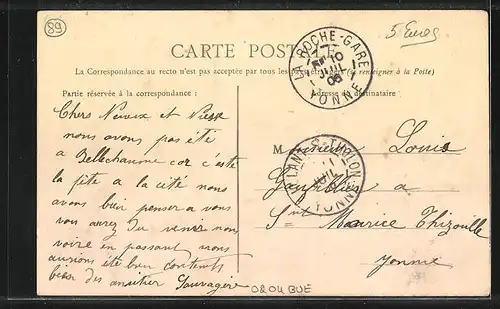 89
5 Euros
CARTE POSTALE
La Correspondance au recto n'est pas acceptée par tous les
(Se renseigner à la Poste)
Partie réservée à la correspondance :
Adresse du destinataire
LA ROCHE-GARE
10
JUIL
06
YONNE
Chers Neveux et Nièce
nous avons pas été
a Bellechaume car c'est
la fête a la cité nous
avons bien penser a vous
vous aurez du venir nous
voire en passant nous
aurions été bien contents
Sauvagère
M onsieur Louis
a
St Maurice Thizouaille
Yonne
YONNE
0804 BUE